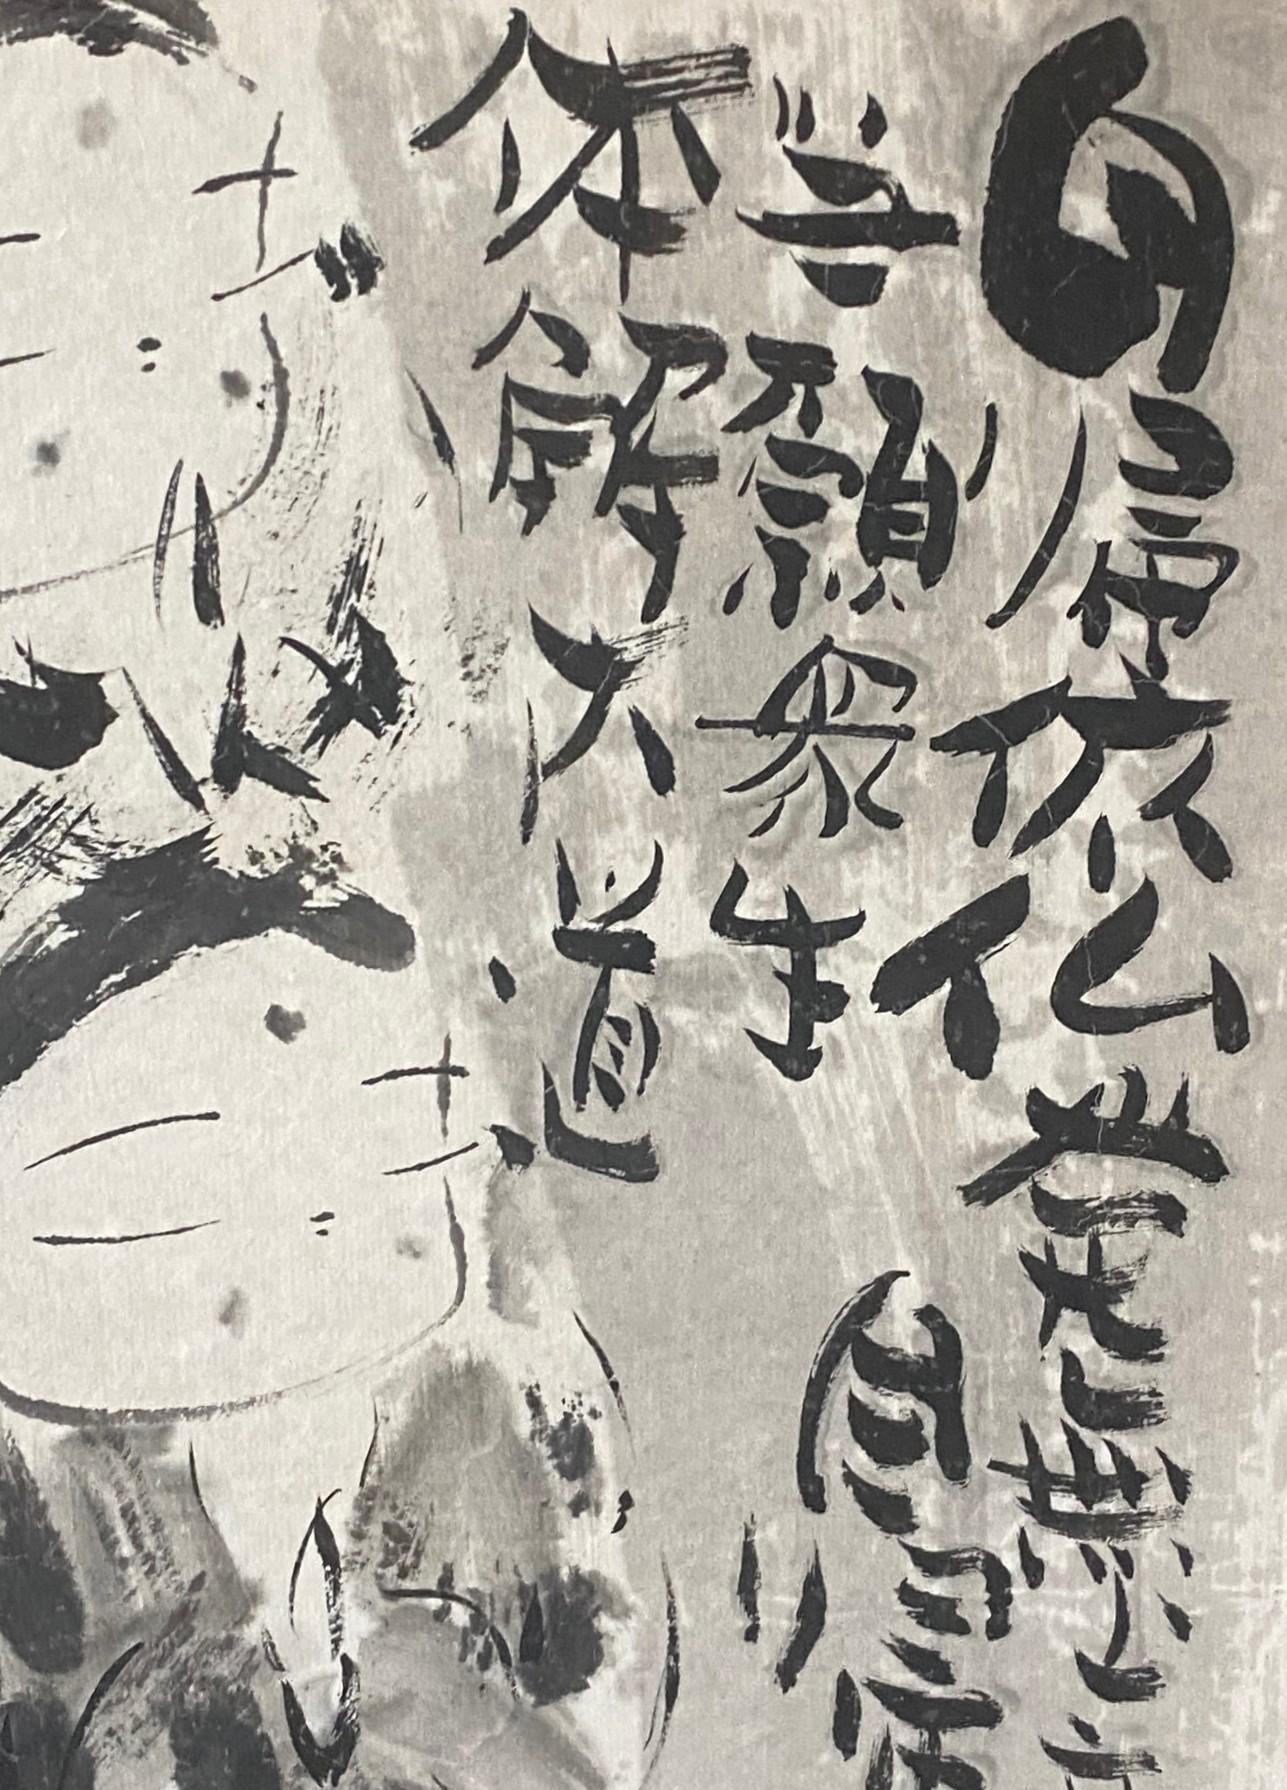 自帰依仏発無上
当願衆生
体解大道
自帰